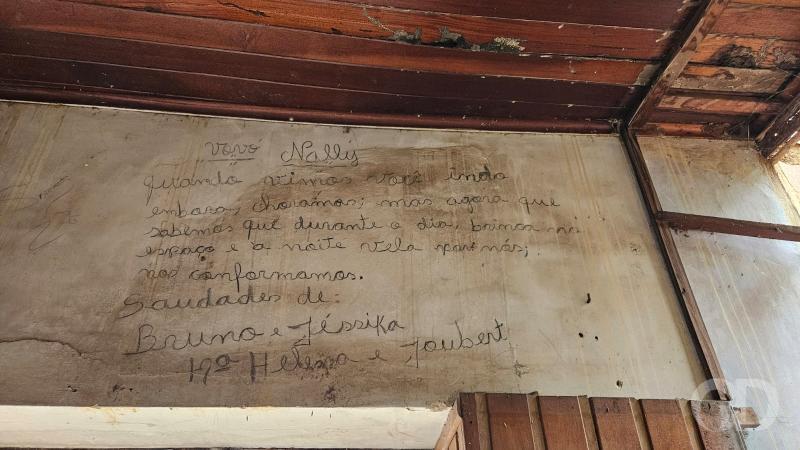 vovó Nally
quando vimos você indo
embora, choramos; mas agora que
sabemos que durante o dia, brinca no
espaço e a noite vela por nós;
nos conformamos.
Saudades de:
Bruno e Jéssika
Mª Helena e Joubert
GD